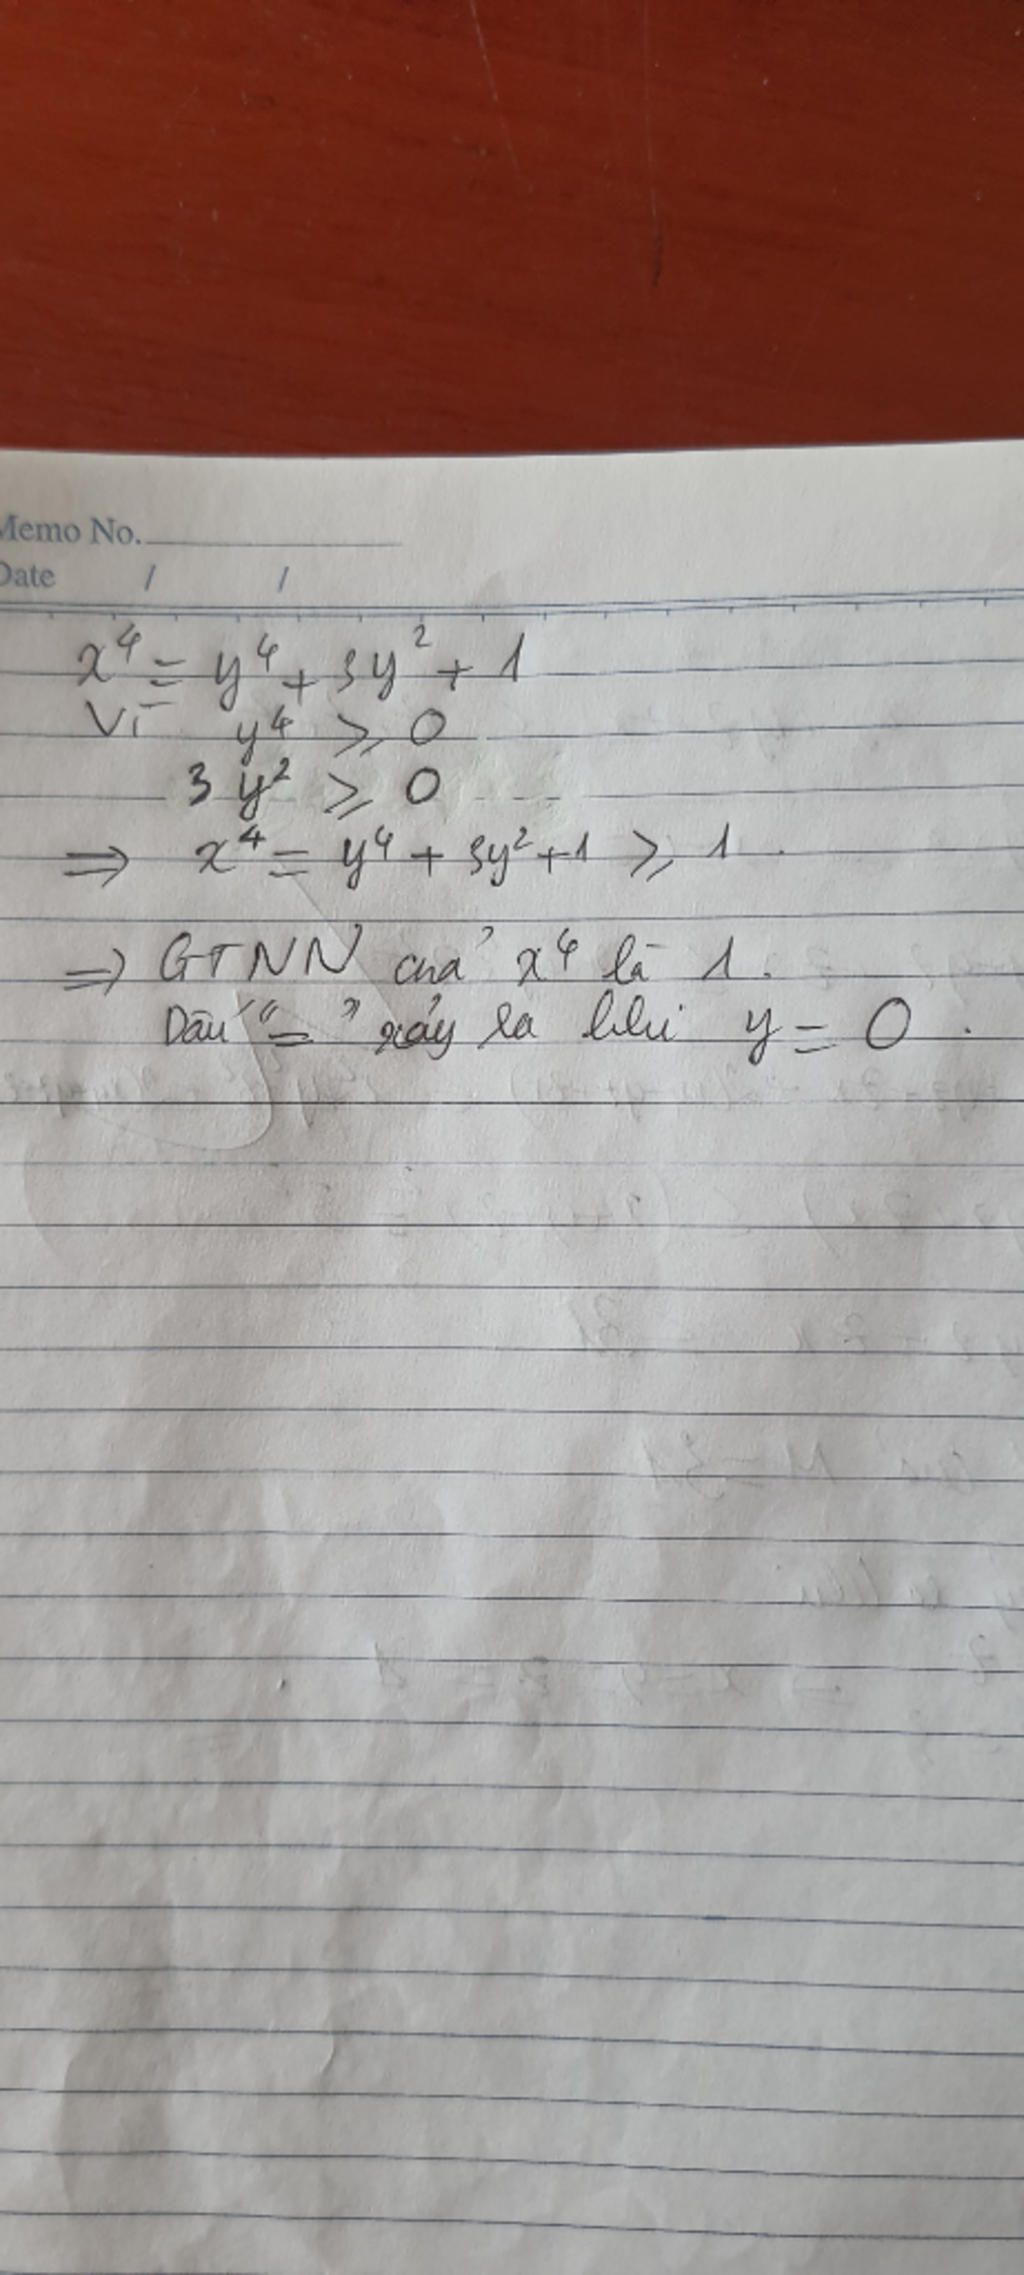 Memo No.
Date / /
x⁴ = y⁴ + 3y² + 1
Vì y⁴ ⩾ 0
3 y² ⩾ 0
⇒ x⁴ = y⁴ + 3y² + 1 ⩾ 1.
⇒ GTNN của x⁴ là 1.
Dấu "=" xảy ra khi y = 0.